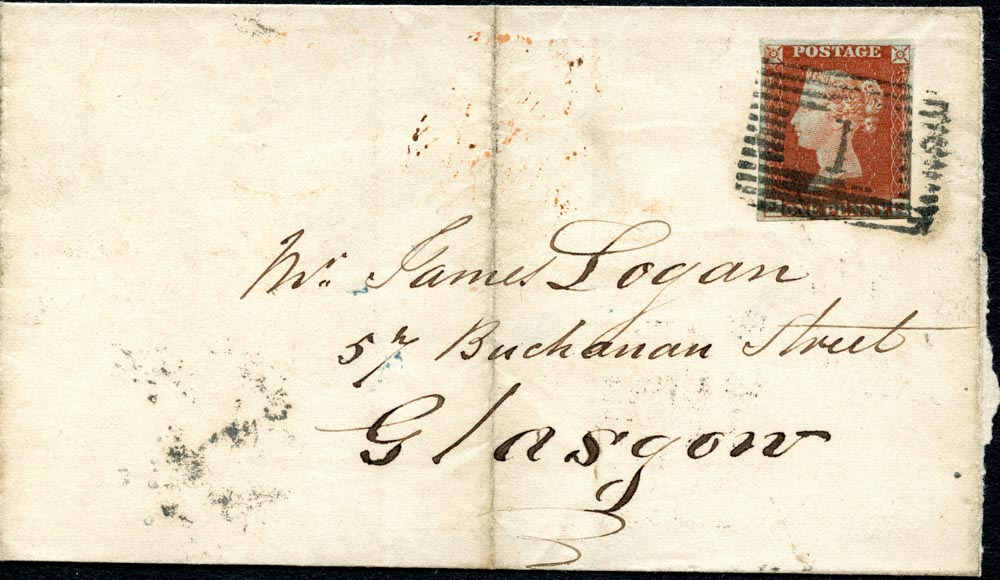 POSTAGE
1
ONE PENNY
Mr. James Logan
57 Buchanan Street
Glasgow